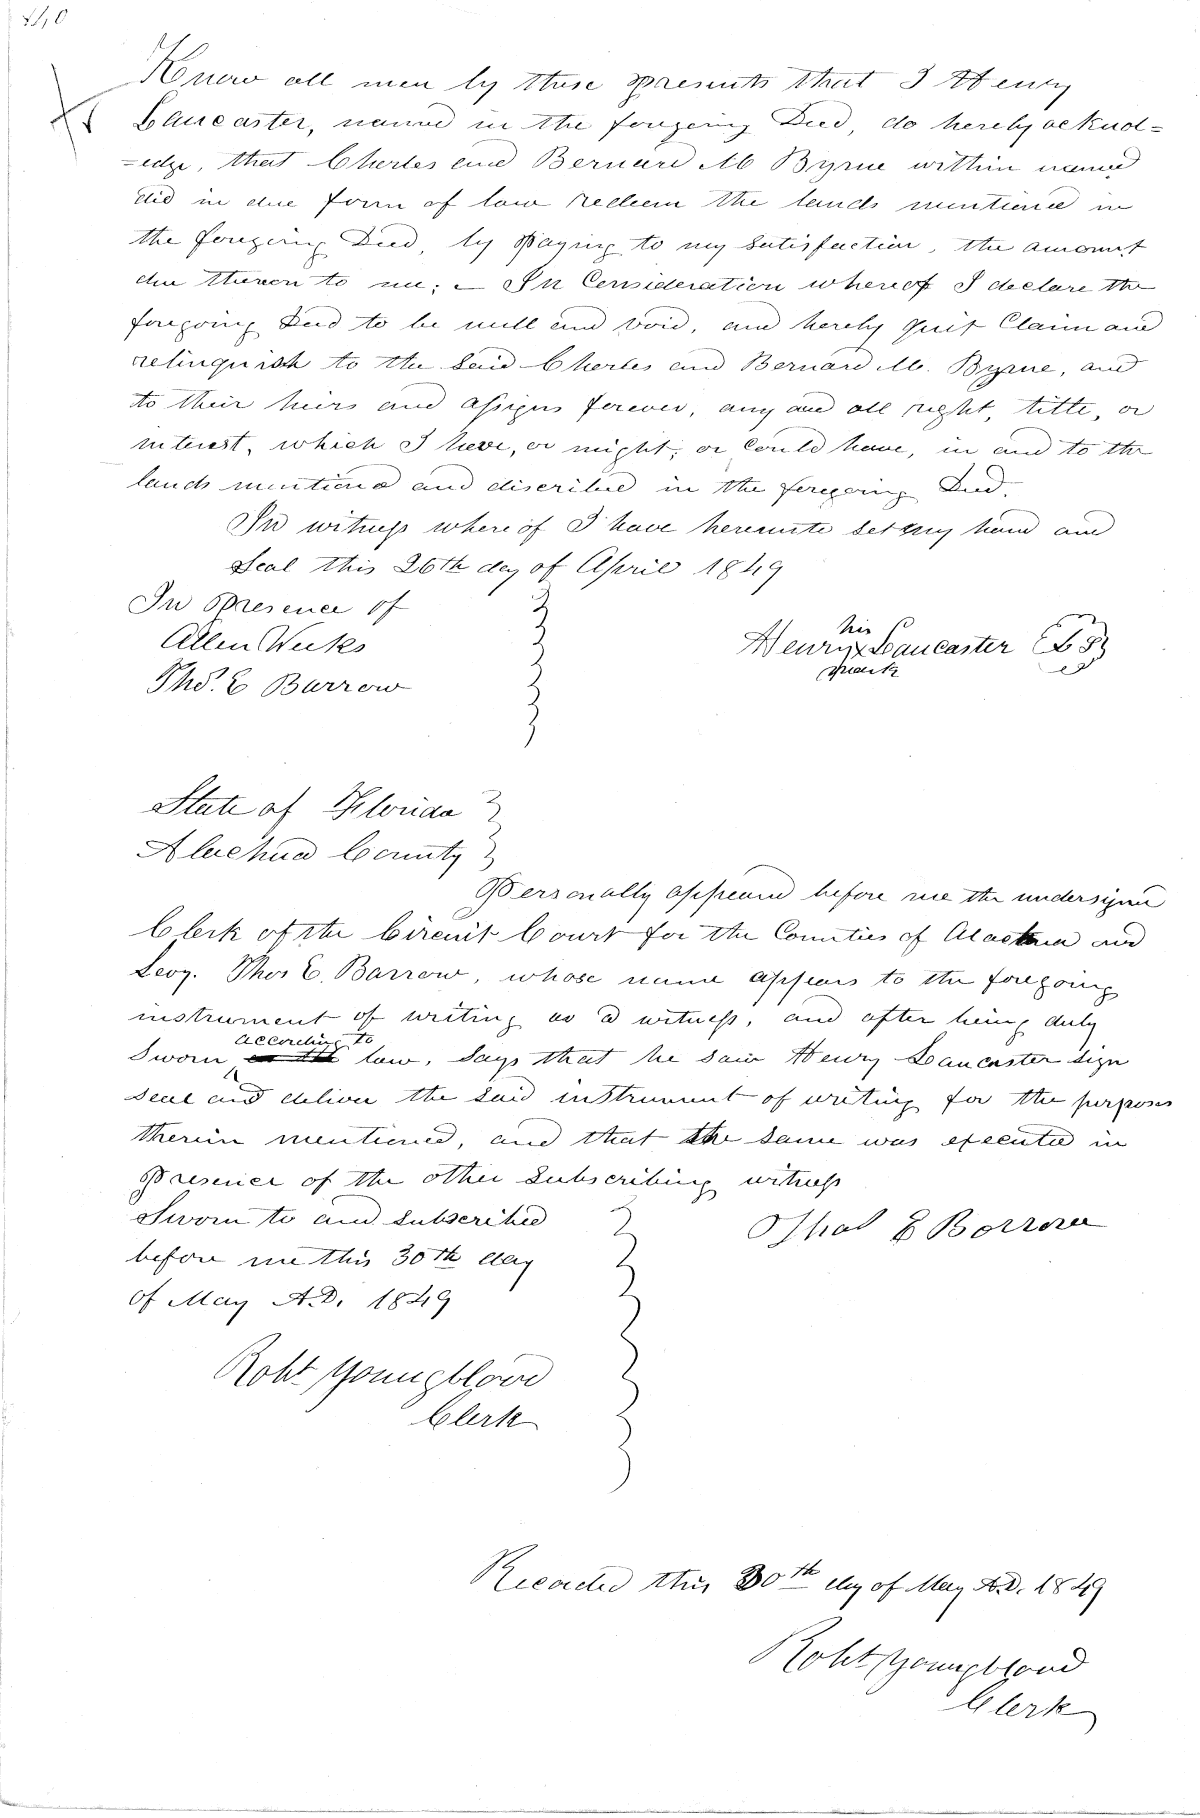 440
Know all men by these presents that I Henry
Lancaster, named in the foregoing Deed, do hereby acknol=
=edge, that Charles and Bernard M Byrne within named
did in due form of law redeem the lands mentioned in
the foregoing Deed, by paying to my satisfaction, the amount
due thereon to me; – In Consideration whereof I declare the
foregoing Deed to be null and void, and hereby quit Claim and
relinquish to the said Charles and Bernard M. Byrne, and
to their heirs and assigns forever, any and all right, title, or
interest, which I have, or might, or could have, in and to the
lands mentiond and discribed in the foregoing Deed.
In witness where of I have hereunto set my hand and
Seal this 26th day of April 1849
In Presence of
Allen Weeks
Thos. E Barrow
his
Henry x Lancaster LS
mark
State of Florida
Alachua County
Personally appeared before me the undersigned
Clerk of the Circuit Court for the Counties of Alachua and
Levy. Thos E. Barrow, whose name appears to the foregoing
instrument of writing as a witness, and after being duly
according to
Sworn law, Says that he saw Henry Lancaster sign
seal and deliver the said instrument of writing for the purposes
therein mentioned, and that the same was executed in
Presence of the other Subscribing witness
Sworn to and Subscribed
before me this 30th day
of May A.D. 1849
Thos E Barrow
Robt Youngblood
Clerk
Recorded this 30th day of May A.D. 1849
Robt Youngblood
Clerk